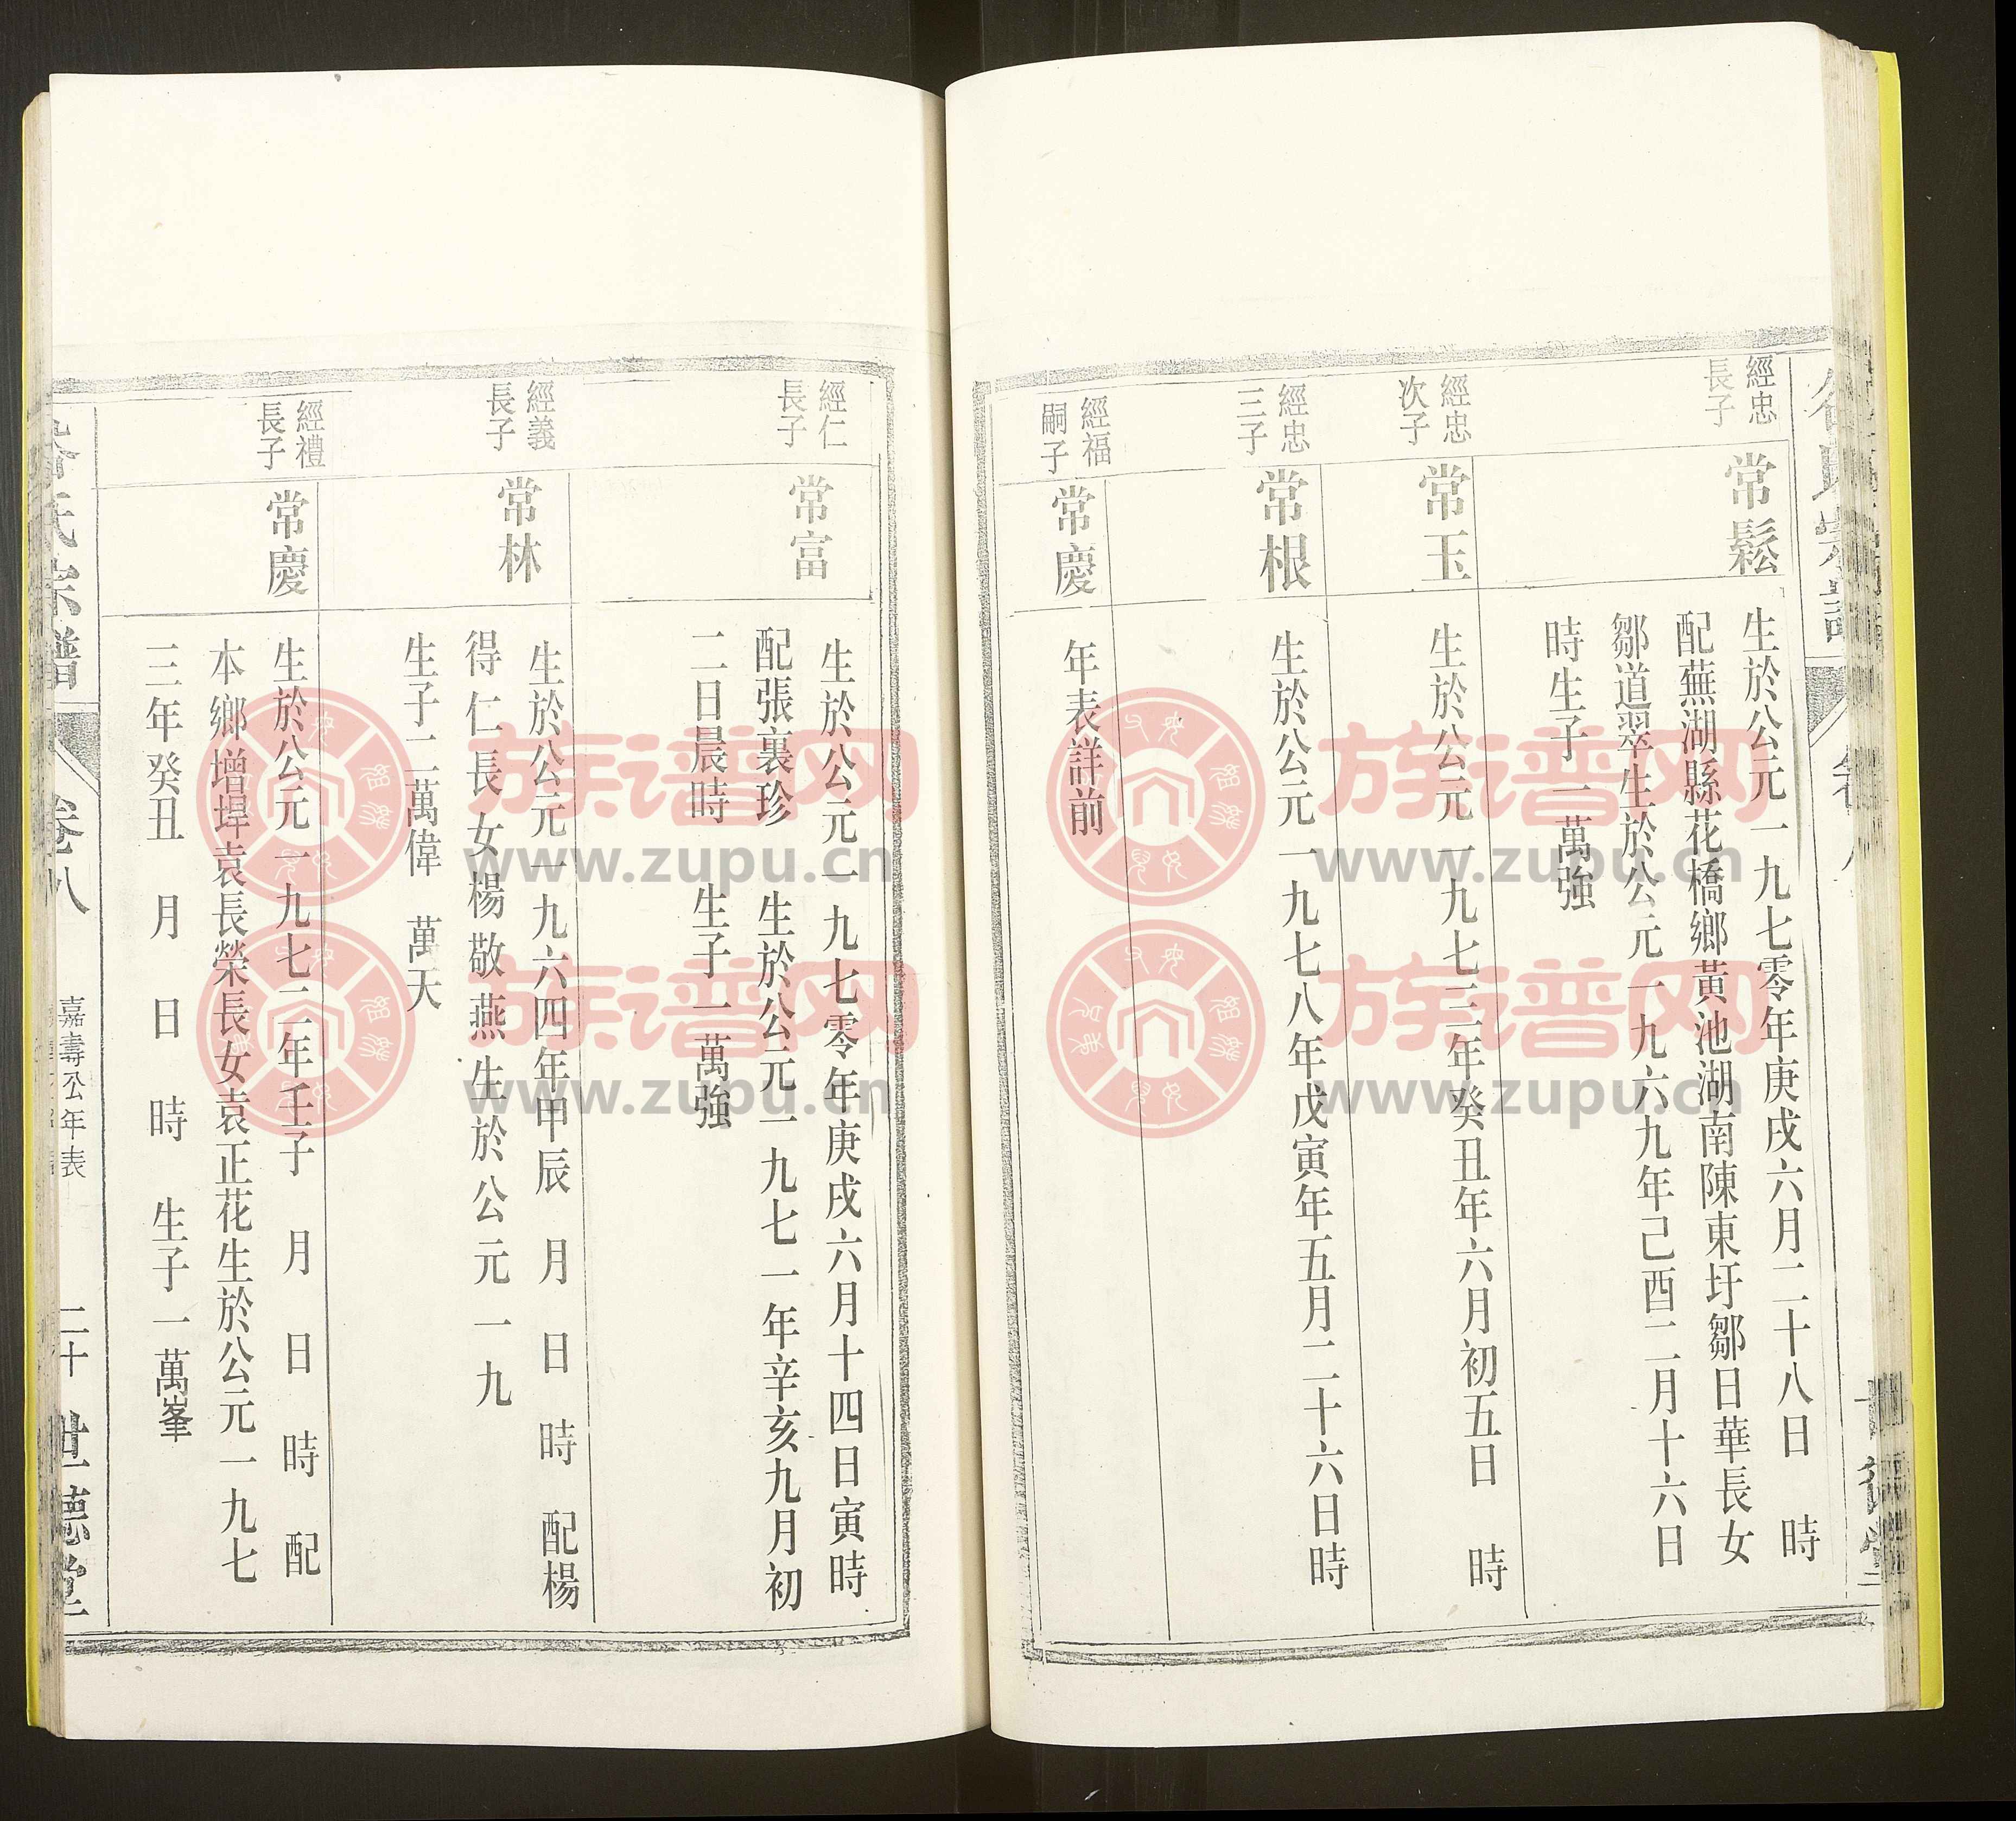 經忠
長子
常鬆
生於公元一九七零年庚戌六月二十八日 時
配蕪湖縣花橋鄉黃池湖南陳東圩鄒日華長女
鄒道翠生於公元一九六九年己酉二月十六日
時生子一萬強
經忠
次子
常玉
生於公元一九七三年癸丑年六月初五日 時
經忠
三子
常根
生於公元一九七八年戊寅年五月二十六日時
經福
嗣子
常慶
年表詳前
經仁
長子
常富
生於公元一九七零年庚戌六月十四日寅時
配張裏珍 生於公元一九七一年辛亥九月初
二日晨時 生子一萬強
經義
長子
常林
生於公元一九六四年甲辰 月 日 時 配楊
得仁長女楊敬燕生於公元一九
生子二萬偉 萬天
經禮
長子
常慶
生於公元一九七二年壬子 月 日 時 配
本鄉增埠袁長榮長女袁正花生於公元一九七
三年癸丑 月 日 時 生子一萬峯
氏宗譜
卷八
嘉壽公年表
二十
世德堂
族谱网
www.zupu.cn
族谱网
www.zupu.cn
族谱网
www.zupu.cn
族谱网
www.zupu.cn